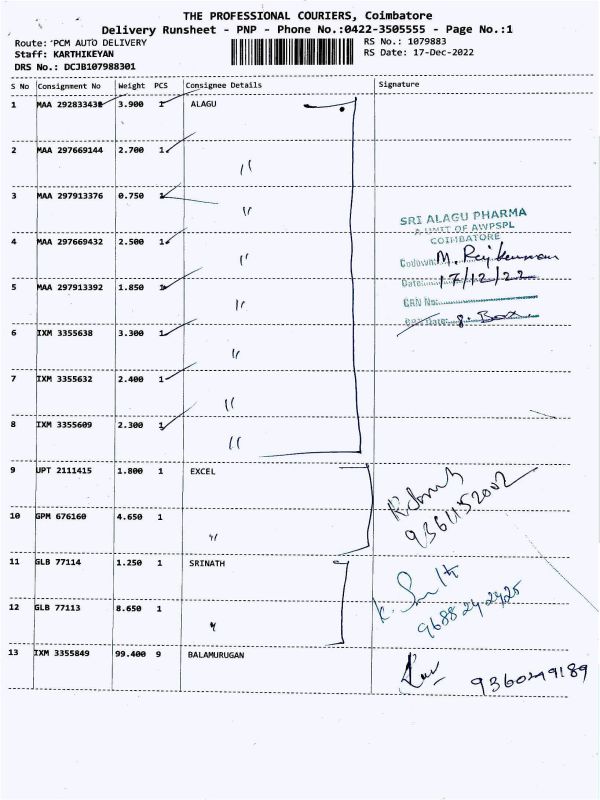 THE PROFESSIONAL COURIERS, Coimbatore
Delivery Runsheet - PNP - Phone No.:0422-3505555 - Page No.:1
Route: PCM AUTO DELIVERY
RS No.: 1079883
Staff: KARTHIKEYAN
RS Date: 17-Dec-2022
DRS No.: DCJB107988301
S No Consignment No Weight PCS Consignee Details Signature
1 MAA 292833438 3.900 1 ALAGU
2 MAA 297669144 2.700 1 "
3 MAA 297913376 0.750 1 "
4 MAA 297669432 2.500 1 "
5 MAA 297913392 1.850 1 "
6 IXM 3355638 3.300 1 "
7 IXM 3355632 2.400 1 "
8 IXM 3355609 2.300 1 "
SRI ALAGU PHARMA
A UNIT OF AWPSPL
COIMBATORE
Godown: M. Rajkumar
Date: 17/12/22
GRN No:
8. Box
9 UPT 2111415 1.800 1 EXCEL
9361152002
10 GPM 676160 4.650 1 "
11 GLB 77114 1.250 1 SRINATH
12 GLB 77113 8.650 1 "
9688-24-2425
13 IXM 3355849 99.400 9 BALAMURUGAN
9360249189